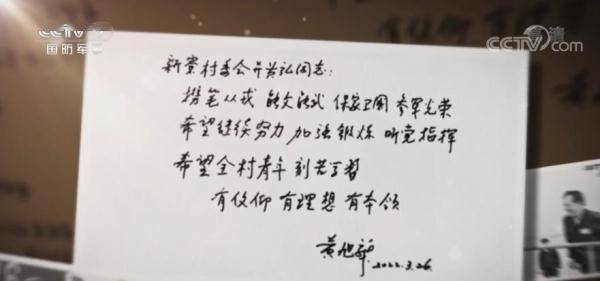 CCTV
国防军事
CCTV.com
新寮村委会并 弘同志:
携笔从戎 能文能武 保家卫国 参军光荣
希望继续努力 加强锻炼 听党指挥
希望全村青年 刻苦学习
有信仰 有理想 有本领
黄旭华 2022.3.26.